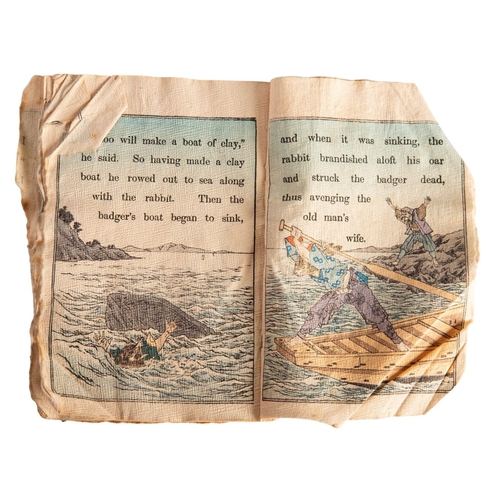 too will make a boat of clay,"
he said. So having made a clay
boat he rowed out to sea along
with the rabbit. Then the
badger's boat began to sink,
and when it was sinking, the
rabbit brandished aloft his oar
and struck the badger dead,
thus avenging the
old man's
wife.